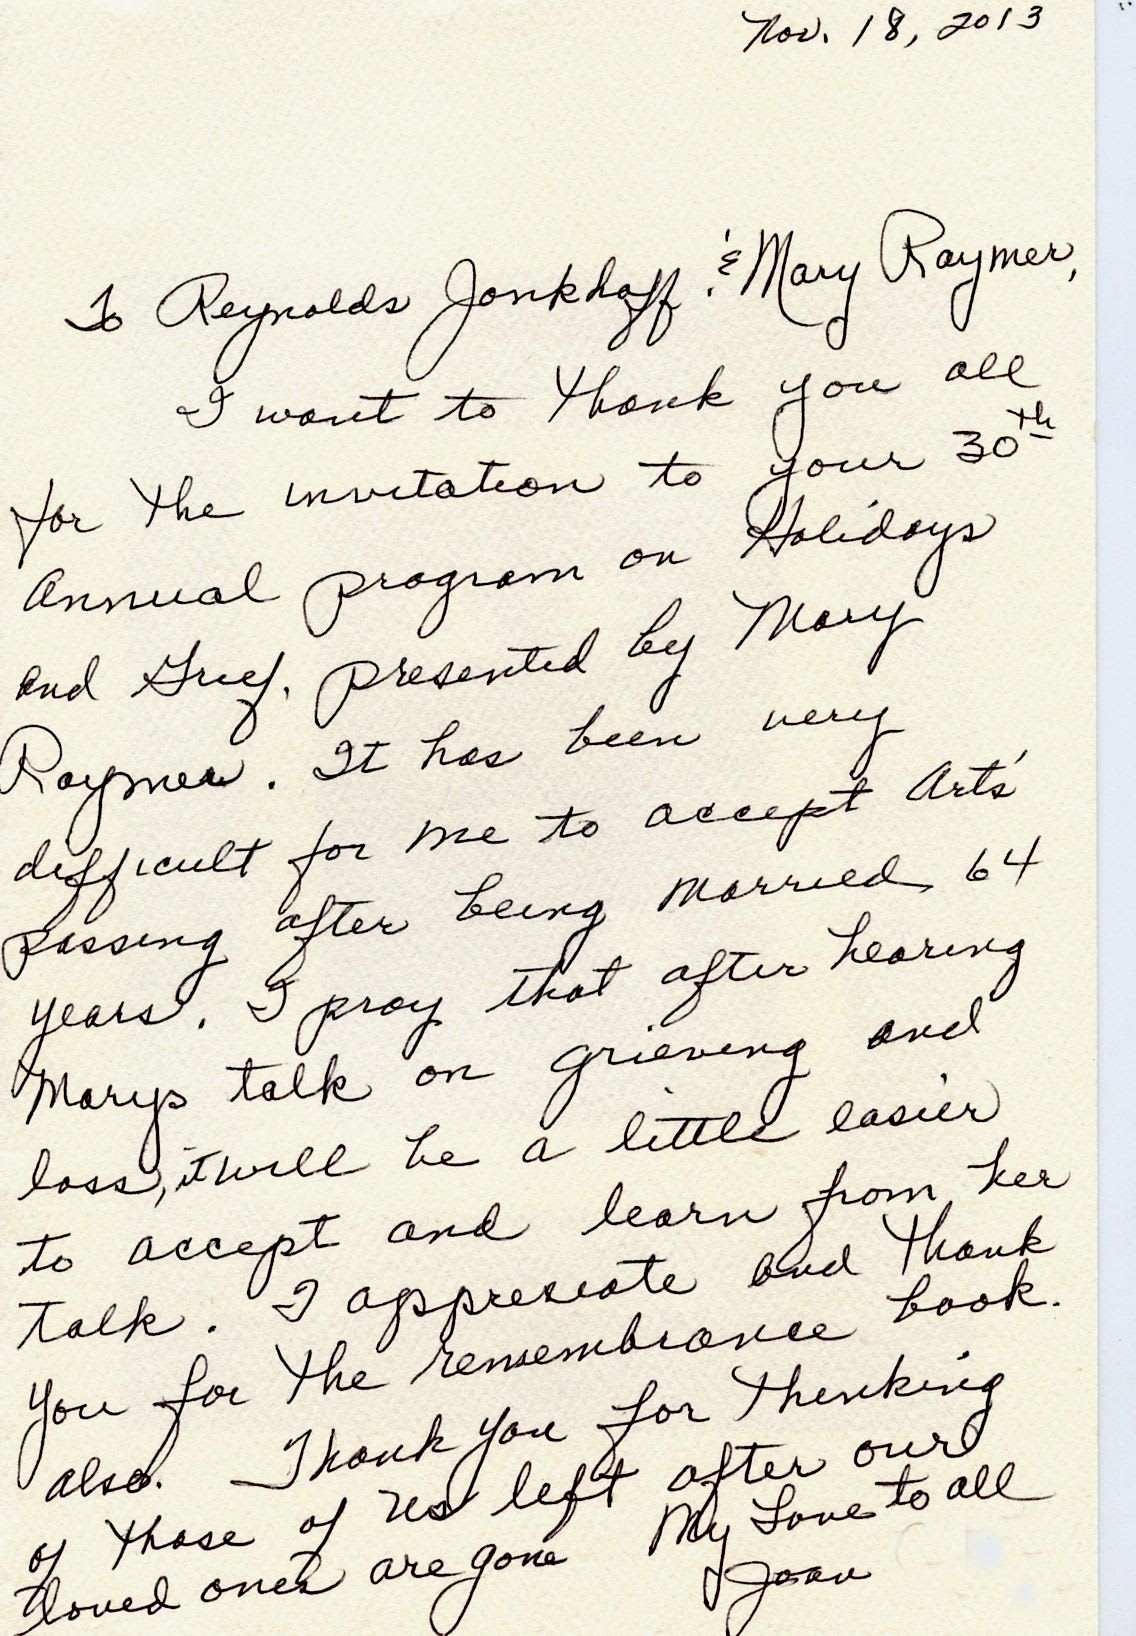 Nov. 18, 2013
To Reynolds Jonkhoff. & Mary Raymer,
I want to thank you all
for the invitation to your 30th
annual program on Holidays
and Grief. presented by Mary
Raymer. It has been very
difficult for me to accept Arts'
passing after being married 64
years. I pray that after hearing
Marys talk on grieving and
loss, it will be a little easier
to accept and learn from her
talk. I appreciate and thank
you for the remembrance book.
also. Thank you for thinking
of those of us left after our
loved ones are gone My Love to all
Joan